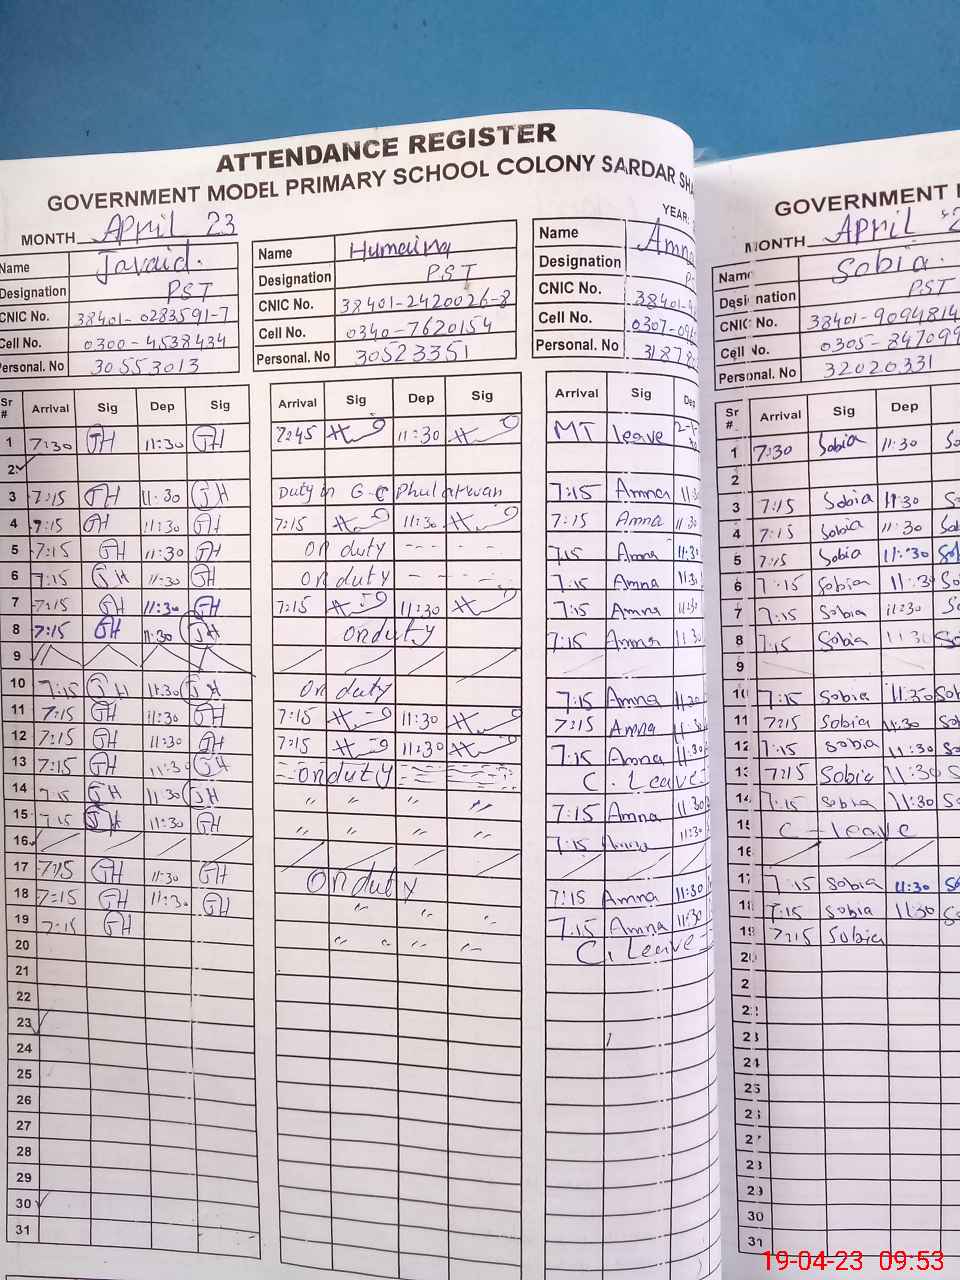 ATTENDANCE REGISTER
GOVERNMENT MODEL PRIMARY SCHOOL COLONY SARDAR SH
MONTH April 23
YEAR:
Name Javaid.
Designation PST
CNIC No. 38401-0283591-7
Cell No. 0300-4538434
Personal. No 30553013
Name Humaira
Designation PST
CNIC No. 38401-2420026-8
Cell No. 0340-7620154
Personal. No 30523351
Name Amna
Designation
CNIC No. 38401-
Cell No. 0307-
Personal. No 3187
Sr # Arrival Sig Dep Sig
1 7:30 JH 11:30 JH
2
3 7:15 JH 11:30 JH
4 7:15 JH 11:30 JH
5 7:15 JH 11:30 JH
6 7:15 JH 11:30 JH
7 7:15 JH 11:30 JH
8 7:15 JH 11:30 JH
9
10 7:15 JH 11:30 JH
11 7:15 JH 11:30 JH
12 7:15 JH 11:30 JH
13 7:15 JH 11:30 JH
14 7:15 JH 11:30 JH
15 7:15 JH 11:30 JH
16
17 7:15 JH 11:30 JH
18 7:15 JH 11:30 JH
19 7:15 JH
20
21
22
23
24
25
26
27
28
29
30
31
Arrival Sig Dep Sig
7:45 11:30
Duty in G.C Phularwan
7:15 11:30
on duty
on duty
7:15 11:30
onduty
on duty
7:15 11:30
7:15 11:30
onduty
" " " "
" " " "
Onduty
" " "
" " " "
Arrival Sig Dep
MT leave
7:15 Amna 11:30
7:15 Amna 11:30
7:15 Amna 11:30
7:15 Amna 11:30
7:15 Amna 11:30
7:15 Amna 11:30
7:15 Amna 11:30
7:15 Amna 11:30
7:15 Amna 11:30
C. Leave
7:15 Amna 11:30
7:15 Amna 11:30
7:15 Amna 11:30
7:15 Amna 11:30
C. Leave
GOVERNMENT
MONTH April
Name Sobia.
Designation PST
CNIC No. 38401-9094814
Cell No. 0305-847099
Personal. No 32020331
Sr #. Arrival Sig Dep
1 7:30 Sobia 11:30
2
3 7:15 Sobia 11:30
4 7:15 Sobia 11:30
5 7:15 Sobia 11:30
6 7:15 Sobia 11:30
7 7:15 Sobia 11:30
8 7:15 Sobia 11:30
9
10 7:15 Sobia 11:30
11 7:15 Sobia 11:30
12 7:15 Sobia 11:30
13 7:15 Sobia 11:30
14 7:15 Sobia 11:30
15 C-leave
16
17 7:15 Sobia 11:30
18 7:15 Sobia 11:30
19 7:15 Sobia
20
21
22
23
24
25
26
27
28
29
30
31
19-04-23 09:53